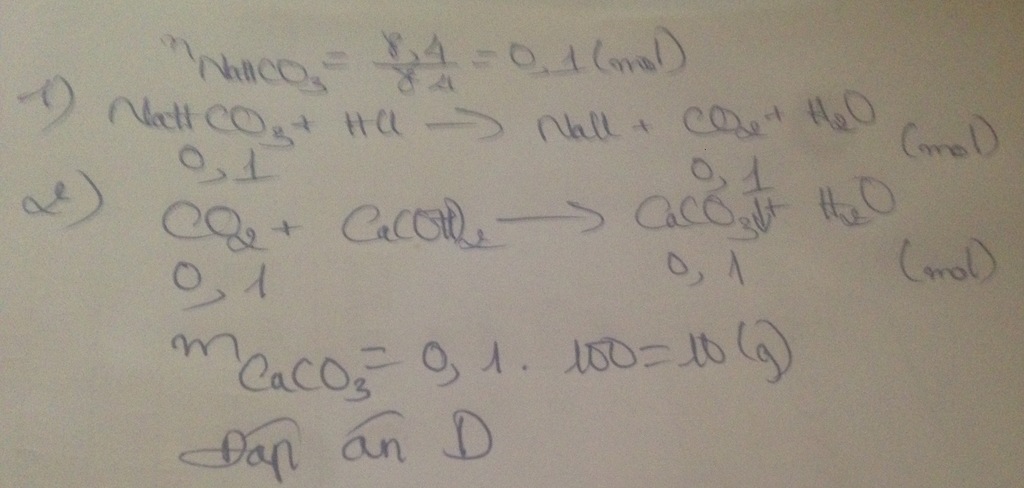 nNaHCO3 = 8,4/84 = 0,1 (mol)
1) NaHCO3 + HCl → NaCl + CO2 + H2O
0,1 0,1 (mol)
2) CO2 + Ca(OH)2 → CaCO3↓ + H2O
0,1 0,1 (mol)
mCaCO3 = 0,1 . 100 = 10 (g)
Đáp án D